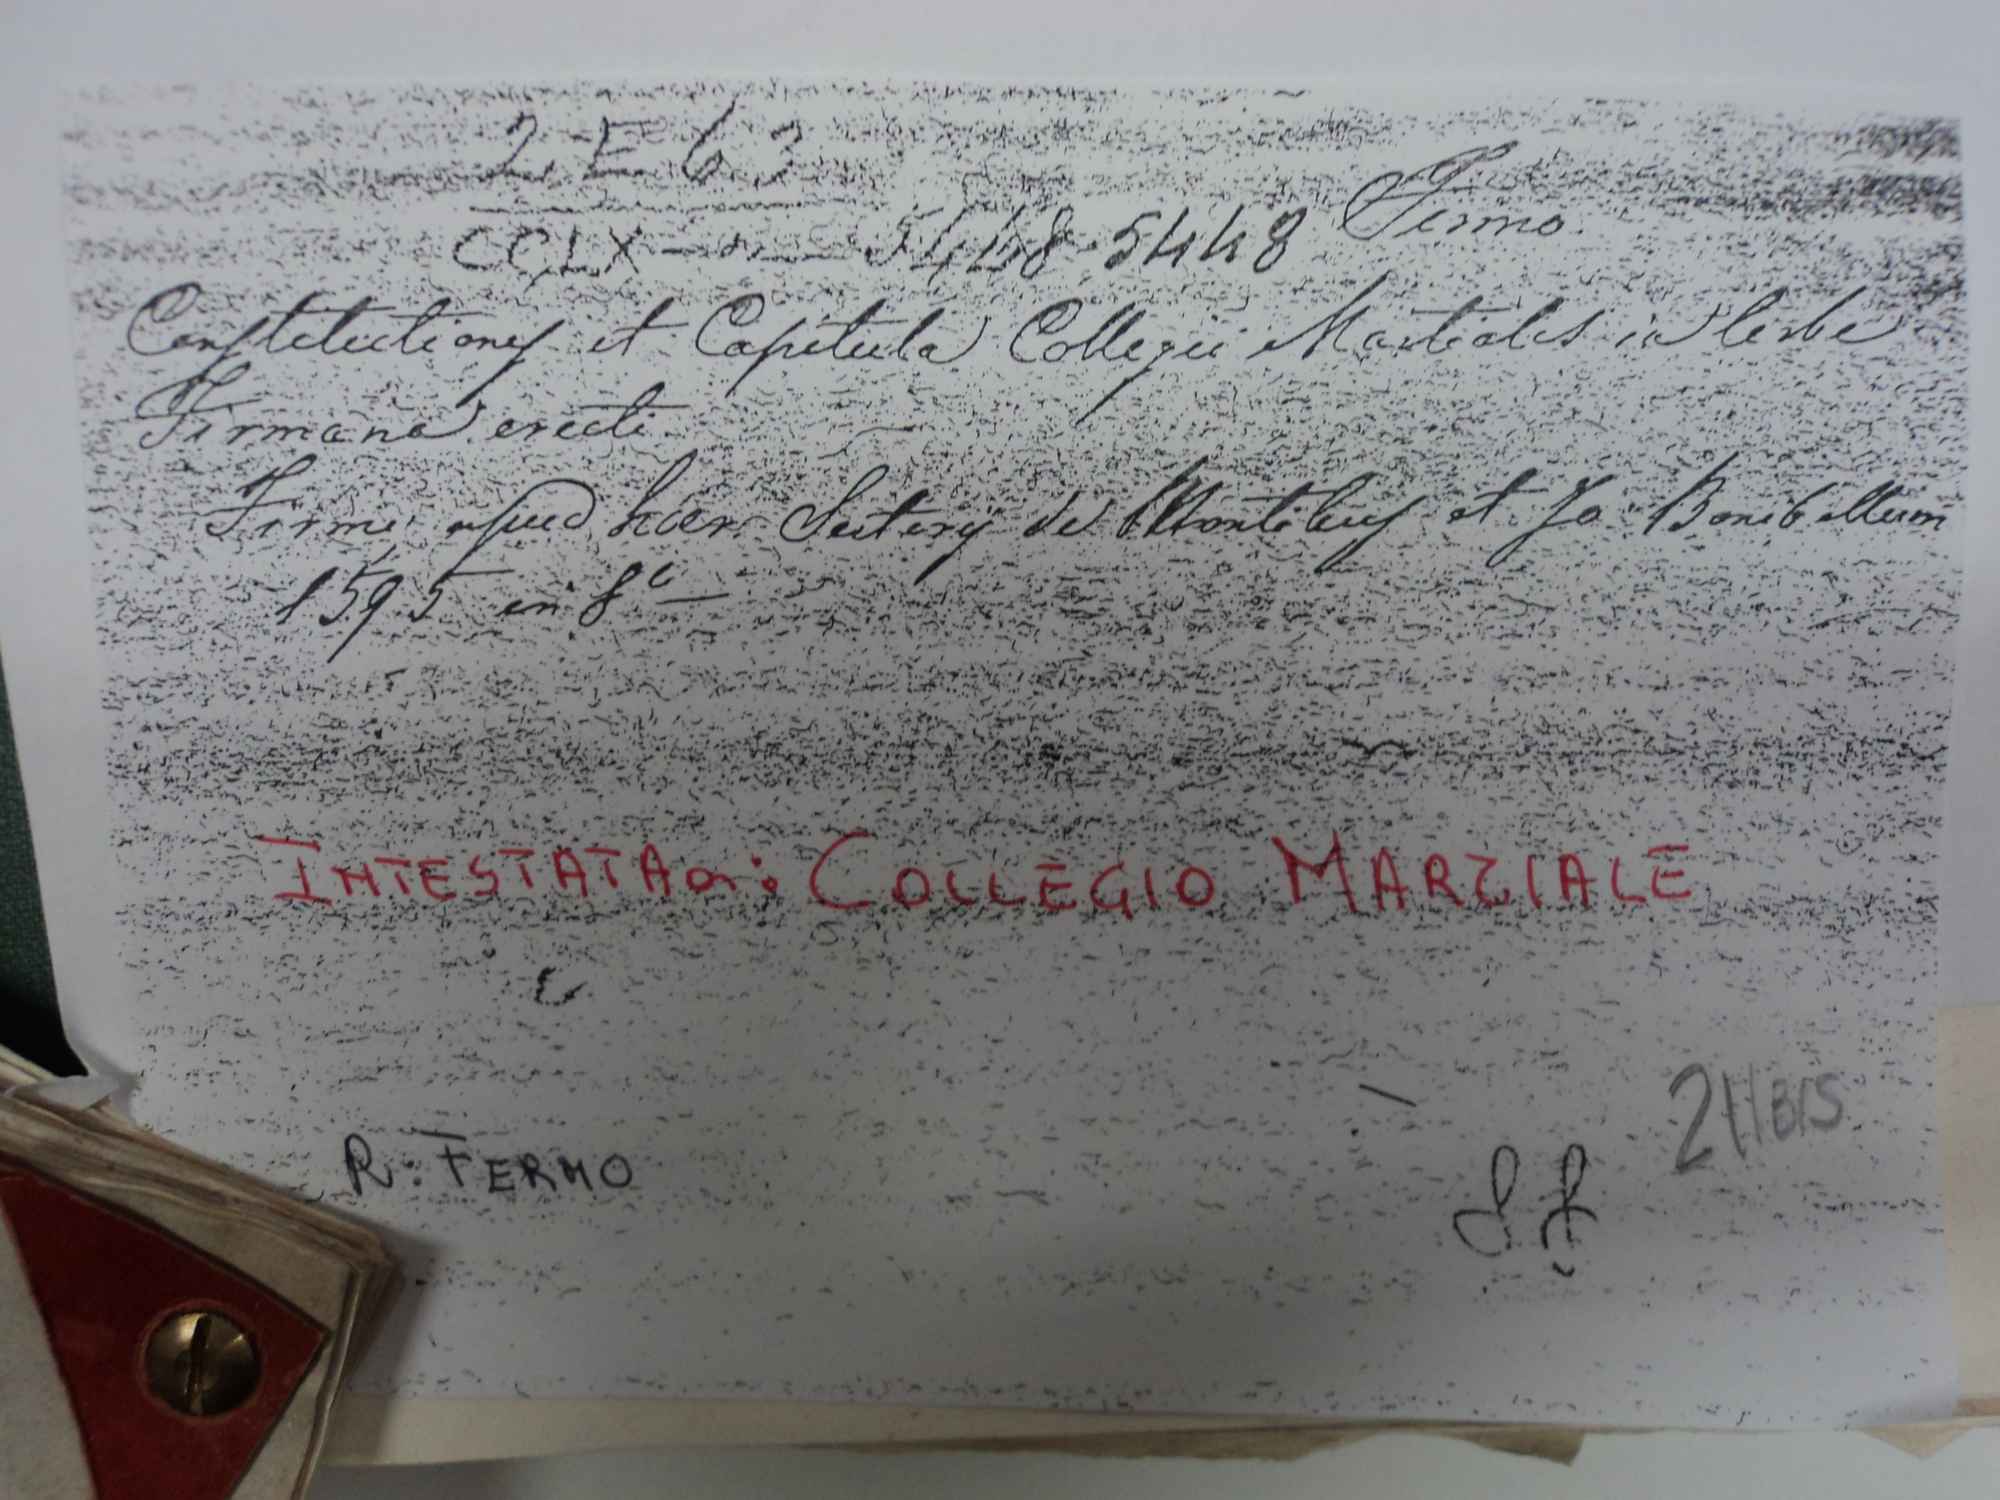 2 E 6 3
CCLX - n - 5448.5448
Firmo.
Constitutiones et Capitula Collegii Martialis in Urbe
Firmana erecti
Firmi, apud haer. Sertorij de Montibus et Jo. Bonibellum
1595 in 8º
INTESTATA a: COLLEGIO MARZIALE
R: FERMO
211 BIS